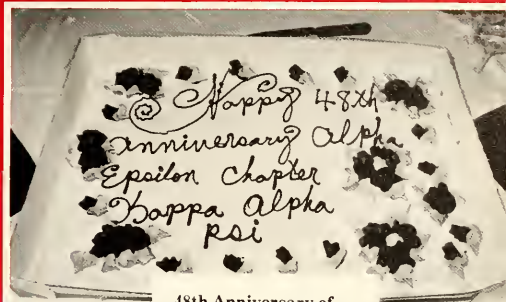 Happy 48th
anniversary Alpha
Epsilon Chapter
Kappa Alpha
Psi
48th Anniversary of